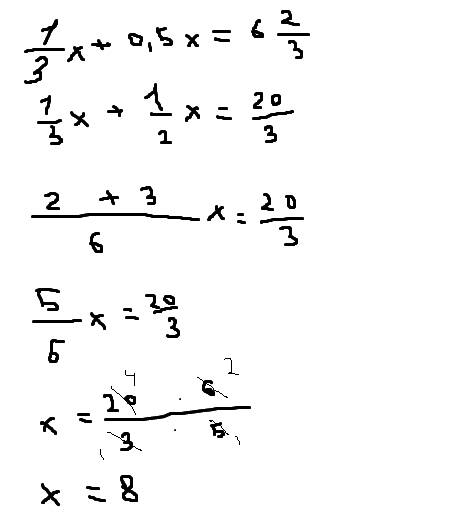 1/3 x + 0,5 x = 6 2/3
1/3 x + 1/2 x = 20/3
(2 + 3)/6 x = 20/3
5/6 x = 20/3
4 2
x = (20 · 6)/(3 · 5)
1 1
x = 8